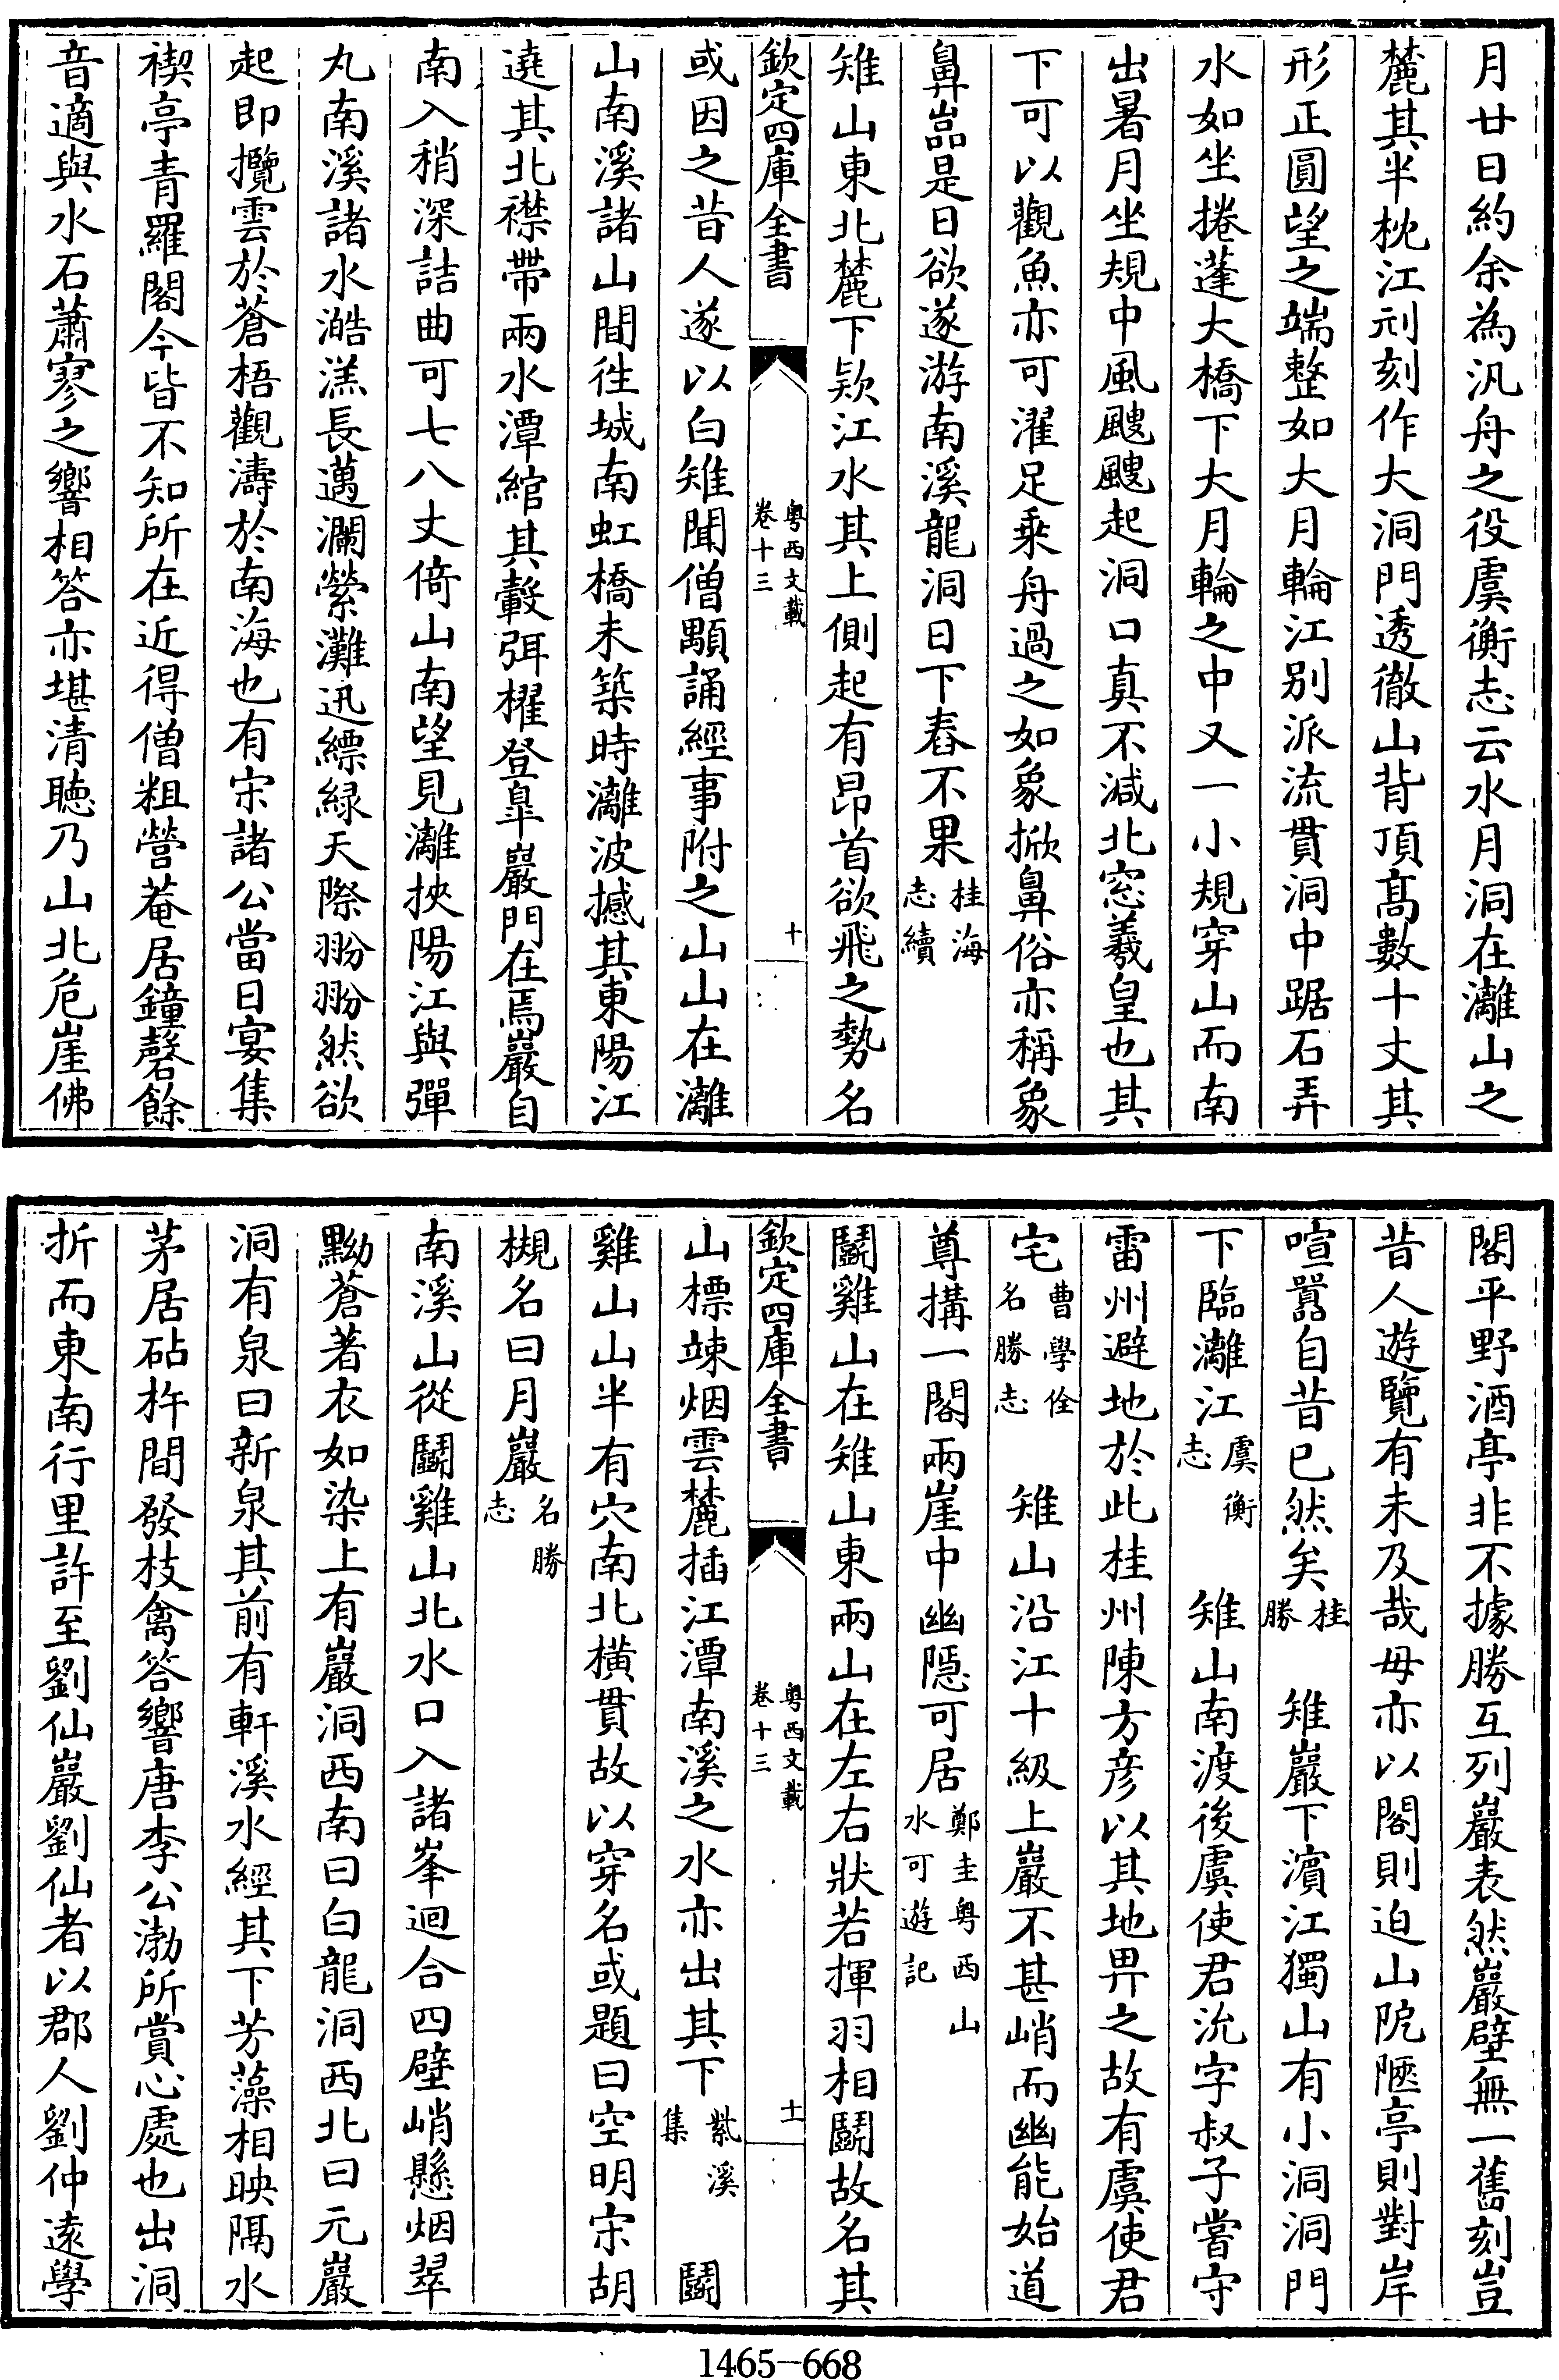 月廿日約余為汎舟之役虞衡志云水月洞在灕山之
麓其半枕江刓刻作大洞門透徹山背頂髙數十丈其
形正圓望之端整如大月輪江别派流貫洞中踞石弄
水如坐捲蓬大橋下大月輪之中又一小規穿山而南
出暑月坐規中風颼颼起洞口真不減北窓羲皇也其
下可以觀魚亦可濯足乗舟過之如象掀鼻俗亦稱象
鼻嵓是日欲遂游南溪龍洞日下舂不果桂海志續
雉山東北麓下欵江水其上側起有昂首欲飛之勢名
欽定四庫全書 粤西文載 卷十三 十
或因之昔人遂以白雉聞僧顒誦經事附之山山在灕
山南溪諸山間徃城南虹橋未築時灕波撼其東陽江
遶其北襟帶兩水潭綰其轂弭櫂登臯巖門在焉巖自
南入稍深詰曲可七八丈倚山南望見灕挾陽江與彈
丸南溪諸水澔溔長邁瀾縈灘迅縹緑天際翂翂然欲
起即攬雲於蒼梧觀濤於南海也有宋諸公當日宴集
禊亭青羅閣今皆不知所在近得僧粗營菴居鐘磬餘
音適與水石蕭寥之響相答亦堪清聴乃山北危崖佛
閣平野酒亭非不據勝互列巖表然巖壁無一舊刻豈
昔人遊覽有未及哉毋亦以閣則迫山阸陋亭則對岸
喧囂自昔已然矣桂勝 雉巖下濱江獨山有小洞洞門
下臨灕江虞衡志 雉山南渡後虞使君沇字叔子嘗守
雷州避地於此桂州陳方彦以其地畀之故有虞使君
宅曹學佺名勝志 雉山沿江十級上巖不甚峭而幽能始道
尊搆一閣兩崖中幽隱可居鄭圭粤西山水可遊記
鬬雞山在雉山東兩山在左右狀若揮羽相鬬故名其
欽定四庫全書 粤西文載 卷十三 十一
山標竦烟雲麓插江潭南溪之水亦出其下紫溪集 鬬
雞山山半有穴南北橫貫故以穿名或題曰空明宋胡
槻名曰月巖名勝志
南溪山從鬬雞山北水口入諸峯迴合四壁峭懸烟翠
黝蒼著衣如染上有巖洞西南曰白龍洞西北曰元巖
洞有泉曰新泉其前有軒溪水經其下芳藻相映隔水
茅居砧杵間發枝禽答響唐李公渤所賞心處也出洞
折而東南行里許至劉仙巖劉仙者以郡人劉仲逺學
1465-668